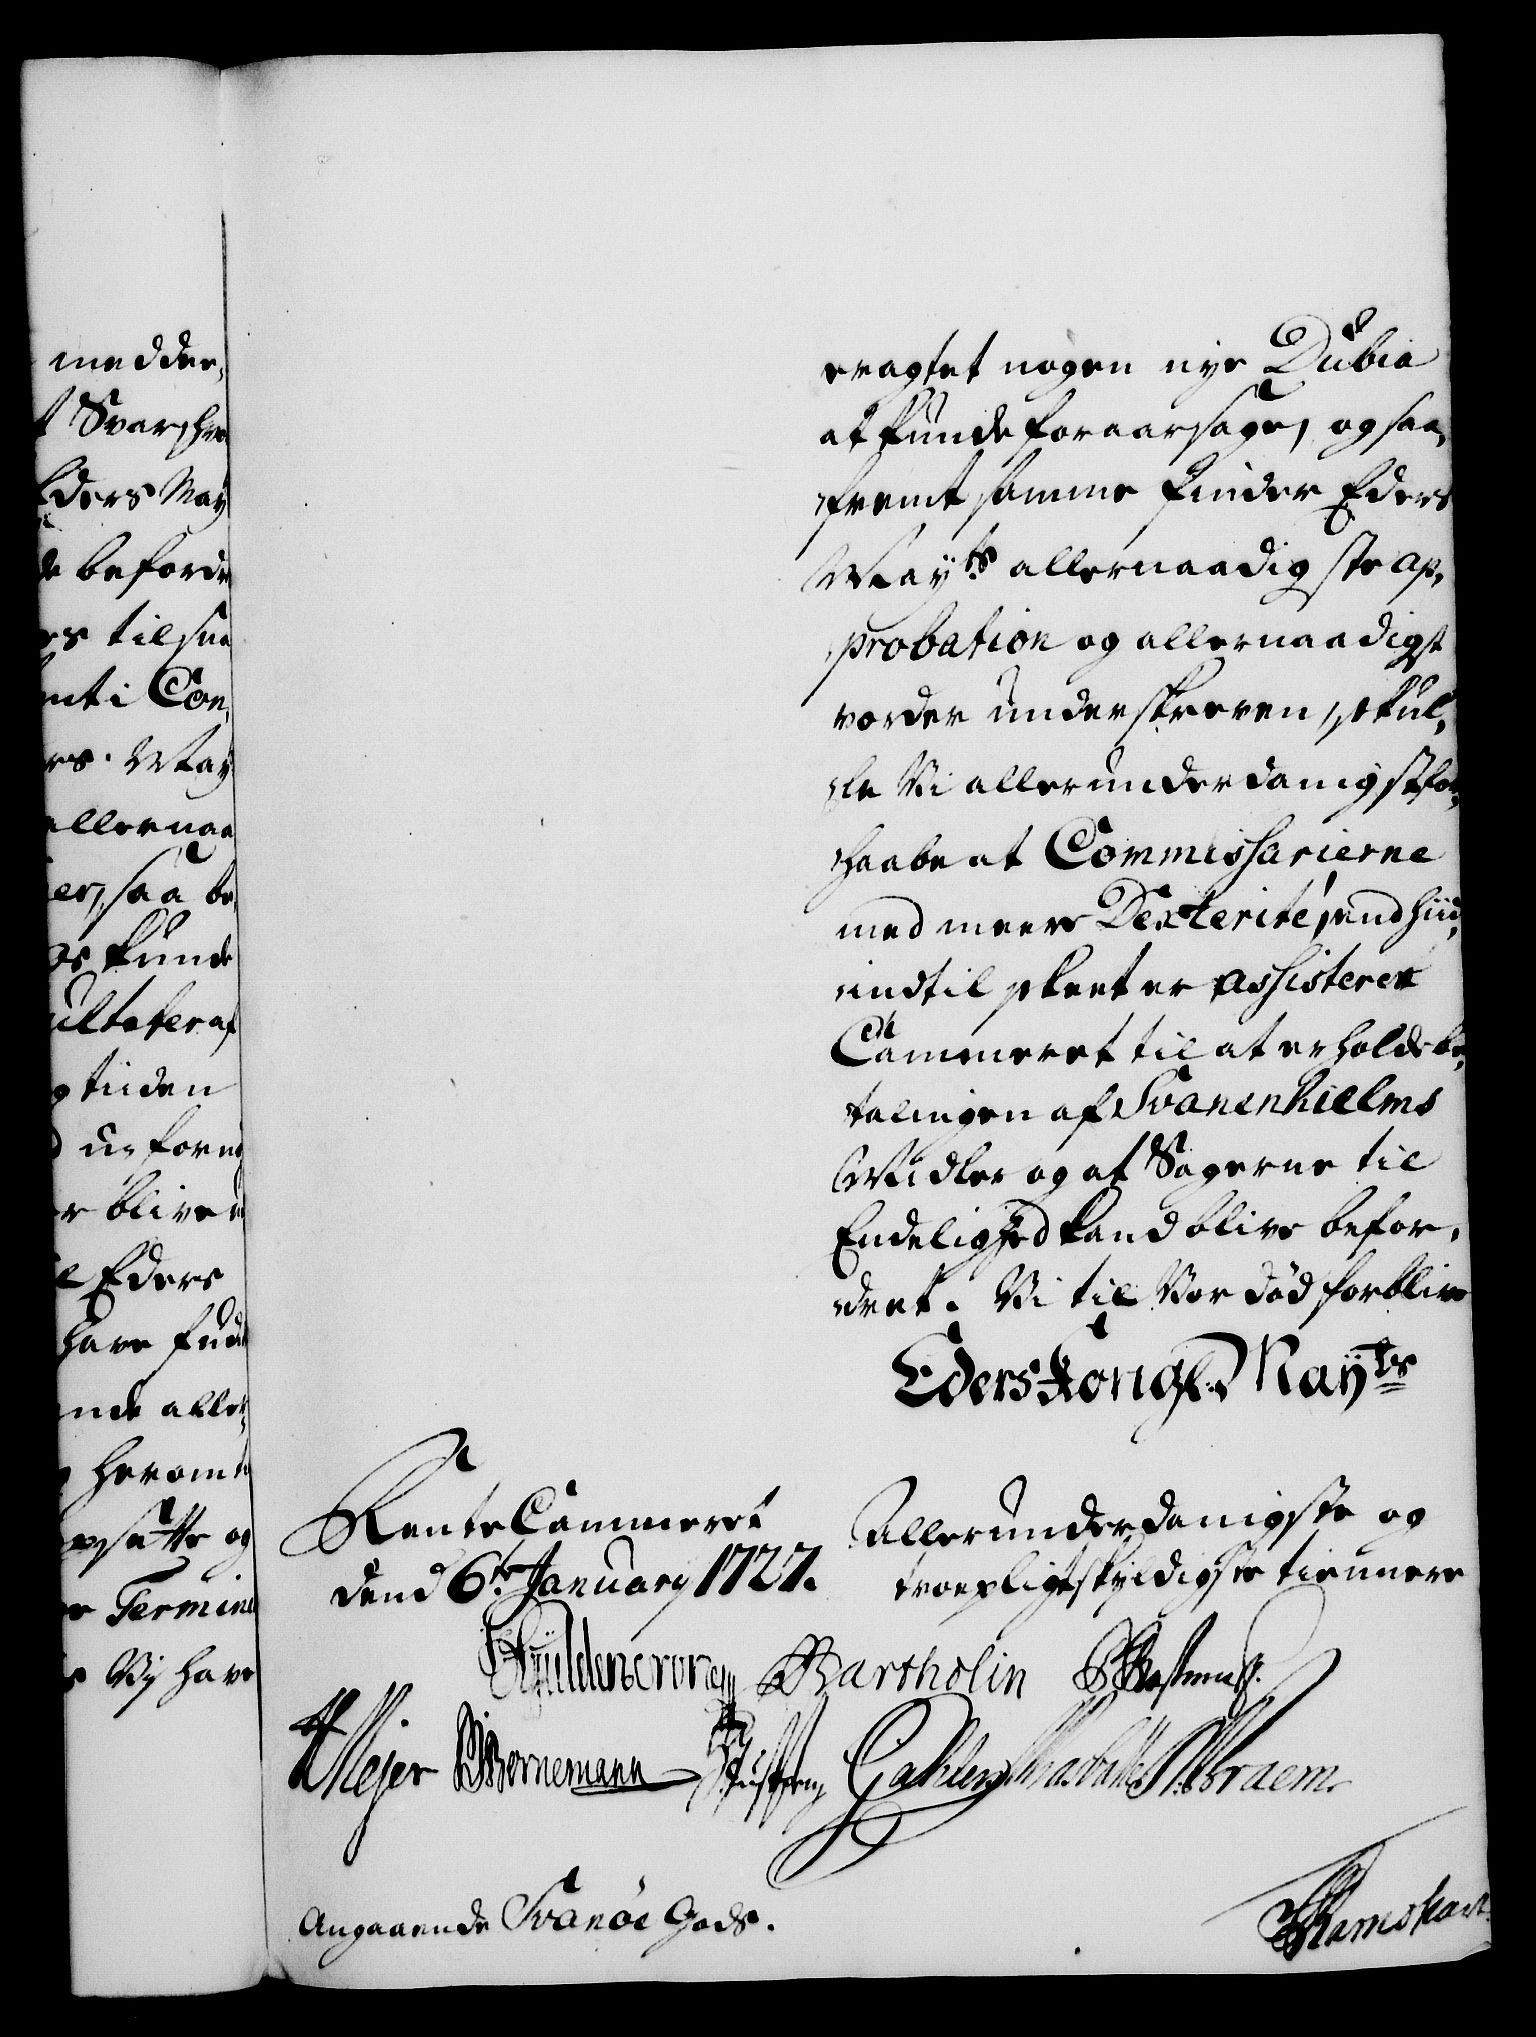 medder,
t Svar, hvo
Eders May
de befordr
es til saa
mt i Con,
rs. May
allernaa
er, saa be,
os kunde
ulteter af
g tiiden
d ufor
r bliver
e Eders
have fuld
nde aller,
g herom
opsatte og
e Termine
s Vij have
eragtet nogen nye Dubia
at kunde foraarsage, og saa,
fremt samme finder Eders
Mayts allernaadigste ap,
probation og allernaadigst
vorder underskreven, skul,
le Vi allerunderdanigst for,
haabe at Commissarierne
med meere Dexterite, end hid,
indtil skeet er assisterer
Cammeret til at erholde be,
talingen af Svanenhielms
Midler og at Sagerne til
Endelighed kand blive befor,
dret. Vi til Vor død forblive
Eders Kongl. Mayts
Rente Cammeret
dend 6te January 1727.
Allerunderdanigste og
troepligtskyldigste tiennere
Gyldencrone Bartholin
Meyer Bornemann Braem.
Angaaende Svanöe Gods.